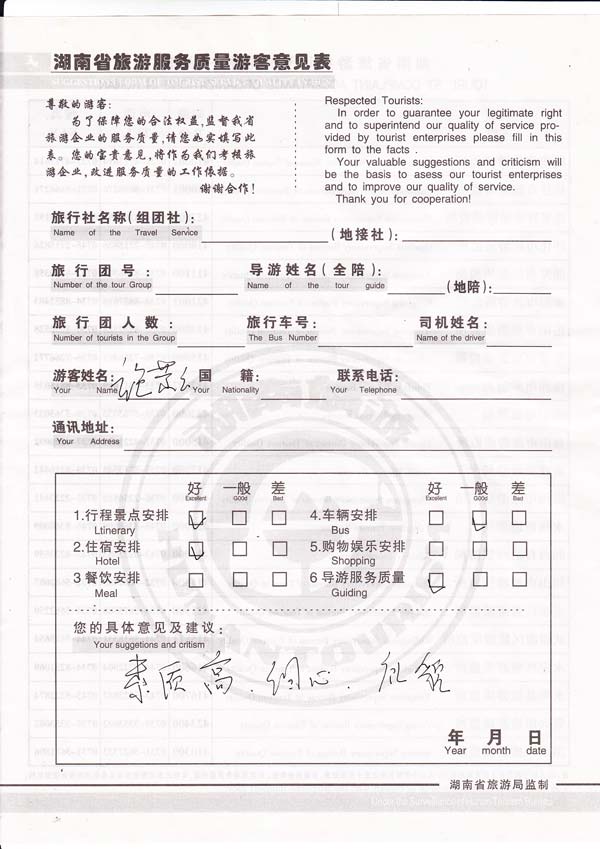 湖南省旅游服务质量游客意见表
尊敬的游客:
为了保障您的合法权益,监督我省
旅游企业的服务质量,请您如实填写此
表。您的宝贵意见,将作为我们考核旅
游企业,改进服务质量的工作依据。
谢谢合作!
Respected Tourists:
In order to guarantee your legitimate right
and to superintend our quality of service pro-
vided by tourist enterprises please fill in this
form to the facts .
Your valuable suggestions and criticism will
be the basis to asess our tourist enterprises
and to improve our quality of service.
Thank you for cooperation!
旅行社名称(组团社): (地接社):
Name of the Travel Service
旅行团号: 导游姓名(全陪): (地陪):
Number of the tour Group Name of the tour guide
旅行团人数: 旅行车号: 司机姓名:
Number of tourists in the Group The Bus Number Name of the driver
游客姓名: 国籍: 联系电话:
Your Name Your Nationality Your Telephone
通讯地址:
Your Address
好 一般 差 好 一般 差
Excellent Good Bad Excellent Good Bad
1.行程景点安排 4.车辆安排
Ltinerary Bus
2.住宿安排 5.购物娱乐安排
Hotel Shopping
3 餐饮安排 6 导游服务质量
Meal Guiding
您的具体意见及建议:
Your suggetions and critism
素质高、细心、
年 月 日
Year month date
湖南省旅游局监制
Under the Surveillance of Hunan Tourism Bureau